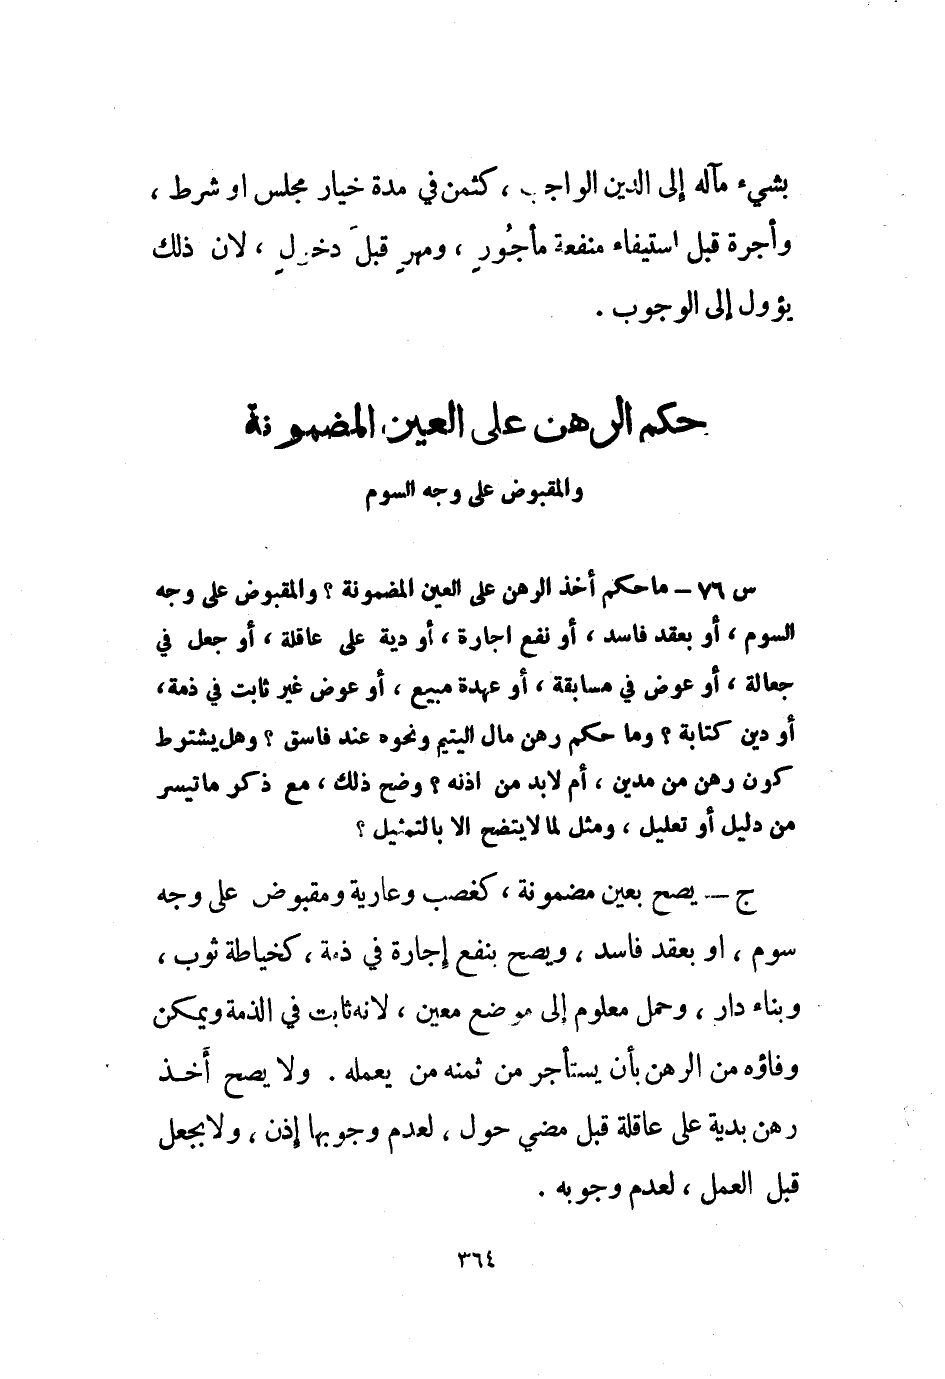 بشيء مآله إلى الدين الواجب ، كثمن في مدة خيار مجلس او شرط ،
وأجرة قبل استيفاء منفعة مأجُورٍ ، ومهرٍ قبلَ دخولٍ ، لان ذلك
يؤول إلى الوجوب .
حكم الرهن على العين المضمونة
والمقبوض على وجه السوم
س ٧٦ – ماحكم أخذ الرهن على العين المضمونة ؟ والمقبوض على وجه
السوم ، أو بعقد فاسد ، أو نفع اجارة ، أو دية على عاقلة ، أو جعل في
جعالة ، أو عوض في مسابقة ، أو عهدة مبيع ، أو عوض غير ثابت في ذمة،
أو دين كتابة ؟ وما حكم رهن مال اليتيم ونحوه عند فاسق ؟ وهل يشترط
كون رهن من مدين ، أم لابد من اذنه ؟ وضح ذلك ، مع ذكر ماتيسر
من دليل أو تعليل ، ومثل لما لايتضح الا بالتمثيل ؟
ج – يصح بعين مضمونة ، كغصب وعارية ومقبوض على وجه
سوم ، او بعقد فاسد ، ويصح بنفع إجارة في ذمة ، كخياطة ثوب ،
وبناء دار ، وحمل معلوم إلى موضع معين ، لانه ثابت في الذمة ويمكن
وفاؤه من الرهن بأن يستأجر من ثمنه من يعمله . ولا يصح أَخذ
رهن بدية على عاقلة قبل مضي حول ، لعدم وجوبها إذن ، ولابجعل
قبل العمل ، لعدم وجوبه .
٣٦٤